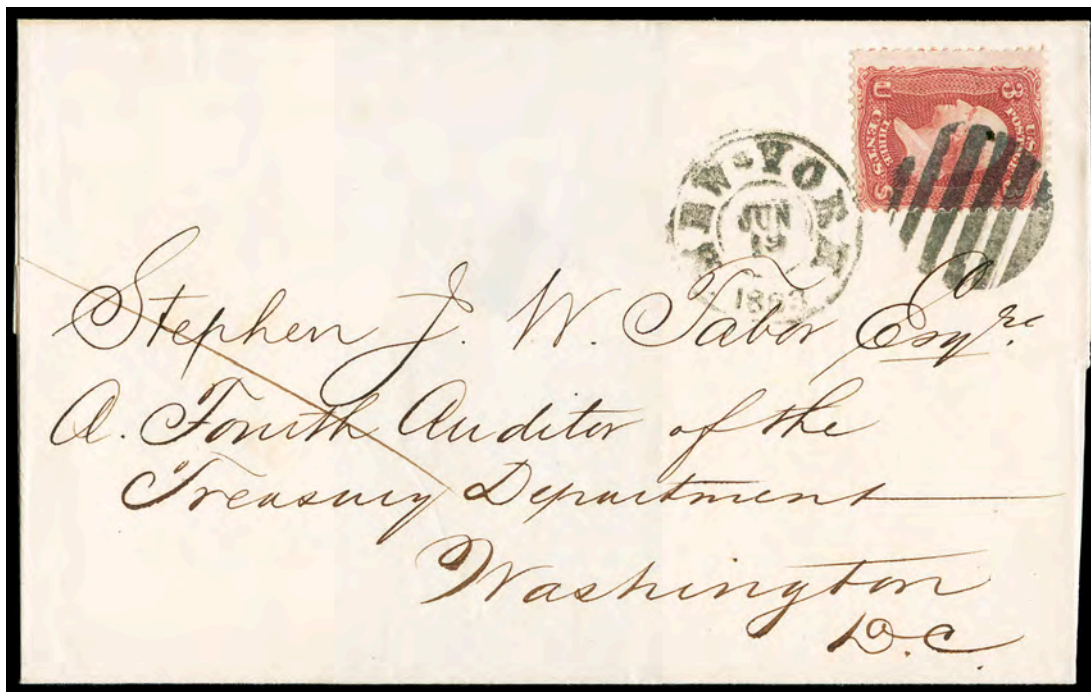 U 3
U.S. POSTAGE
THREE CENTS
S 3
NEW-YORK
JUN
19
1863
Stephen J. W. Tabor Esqre.
A. Fourth Auditor of the
Treasury Department
Washington
D.C.